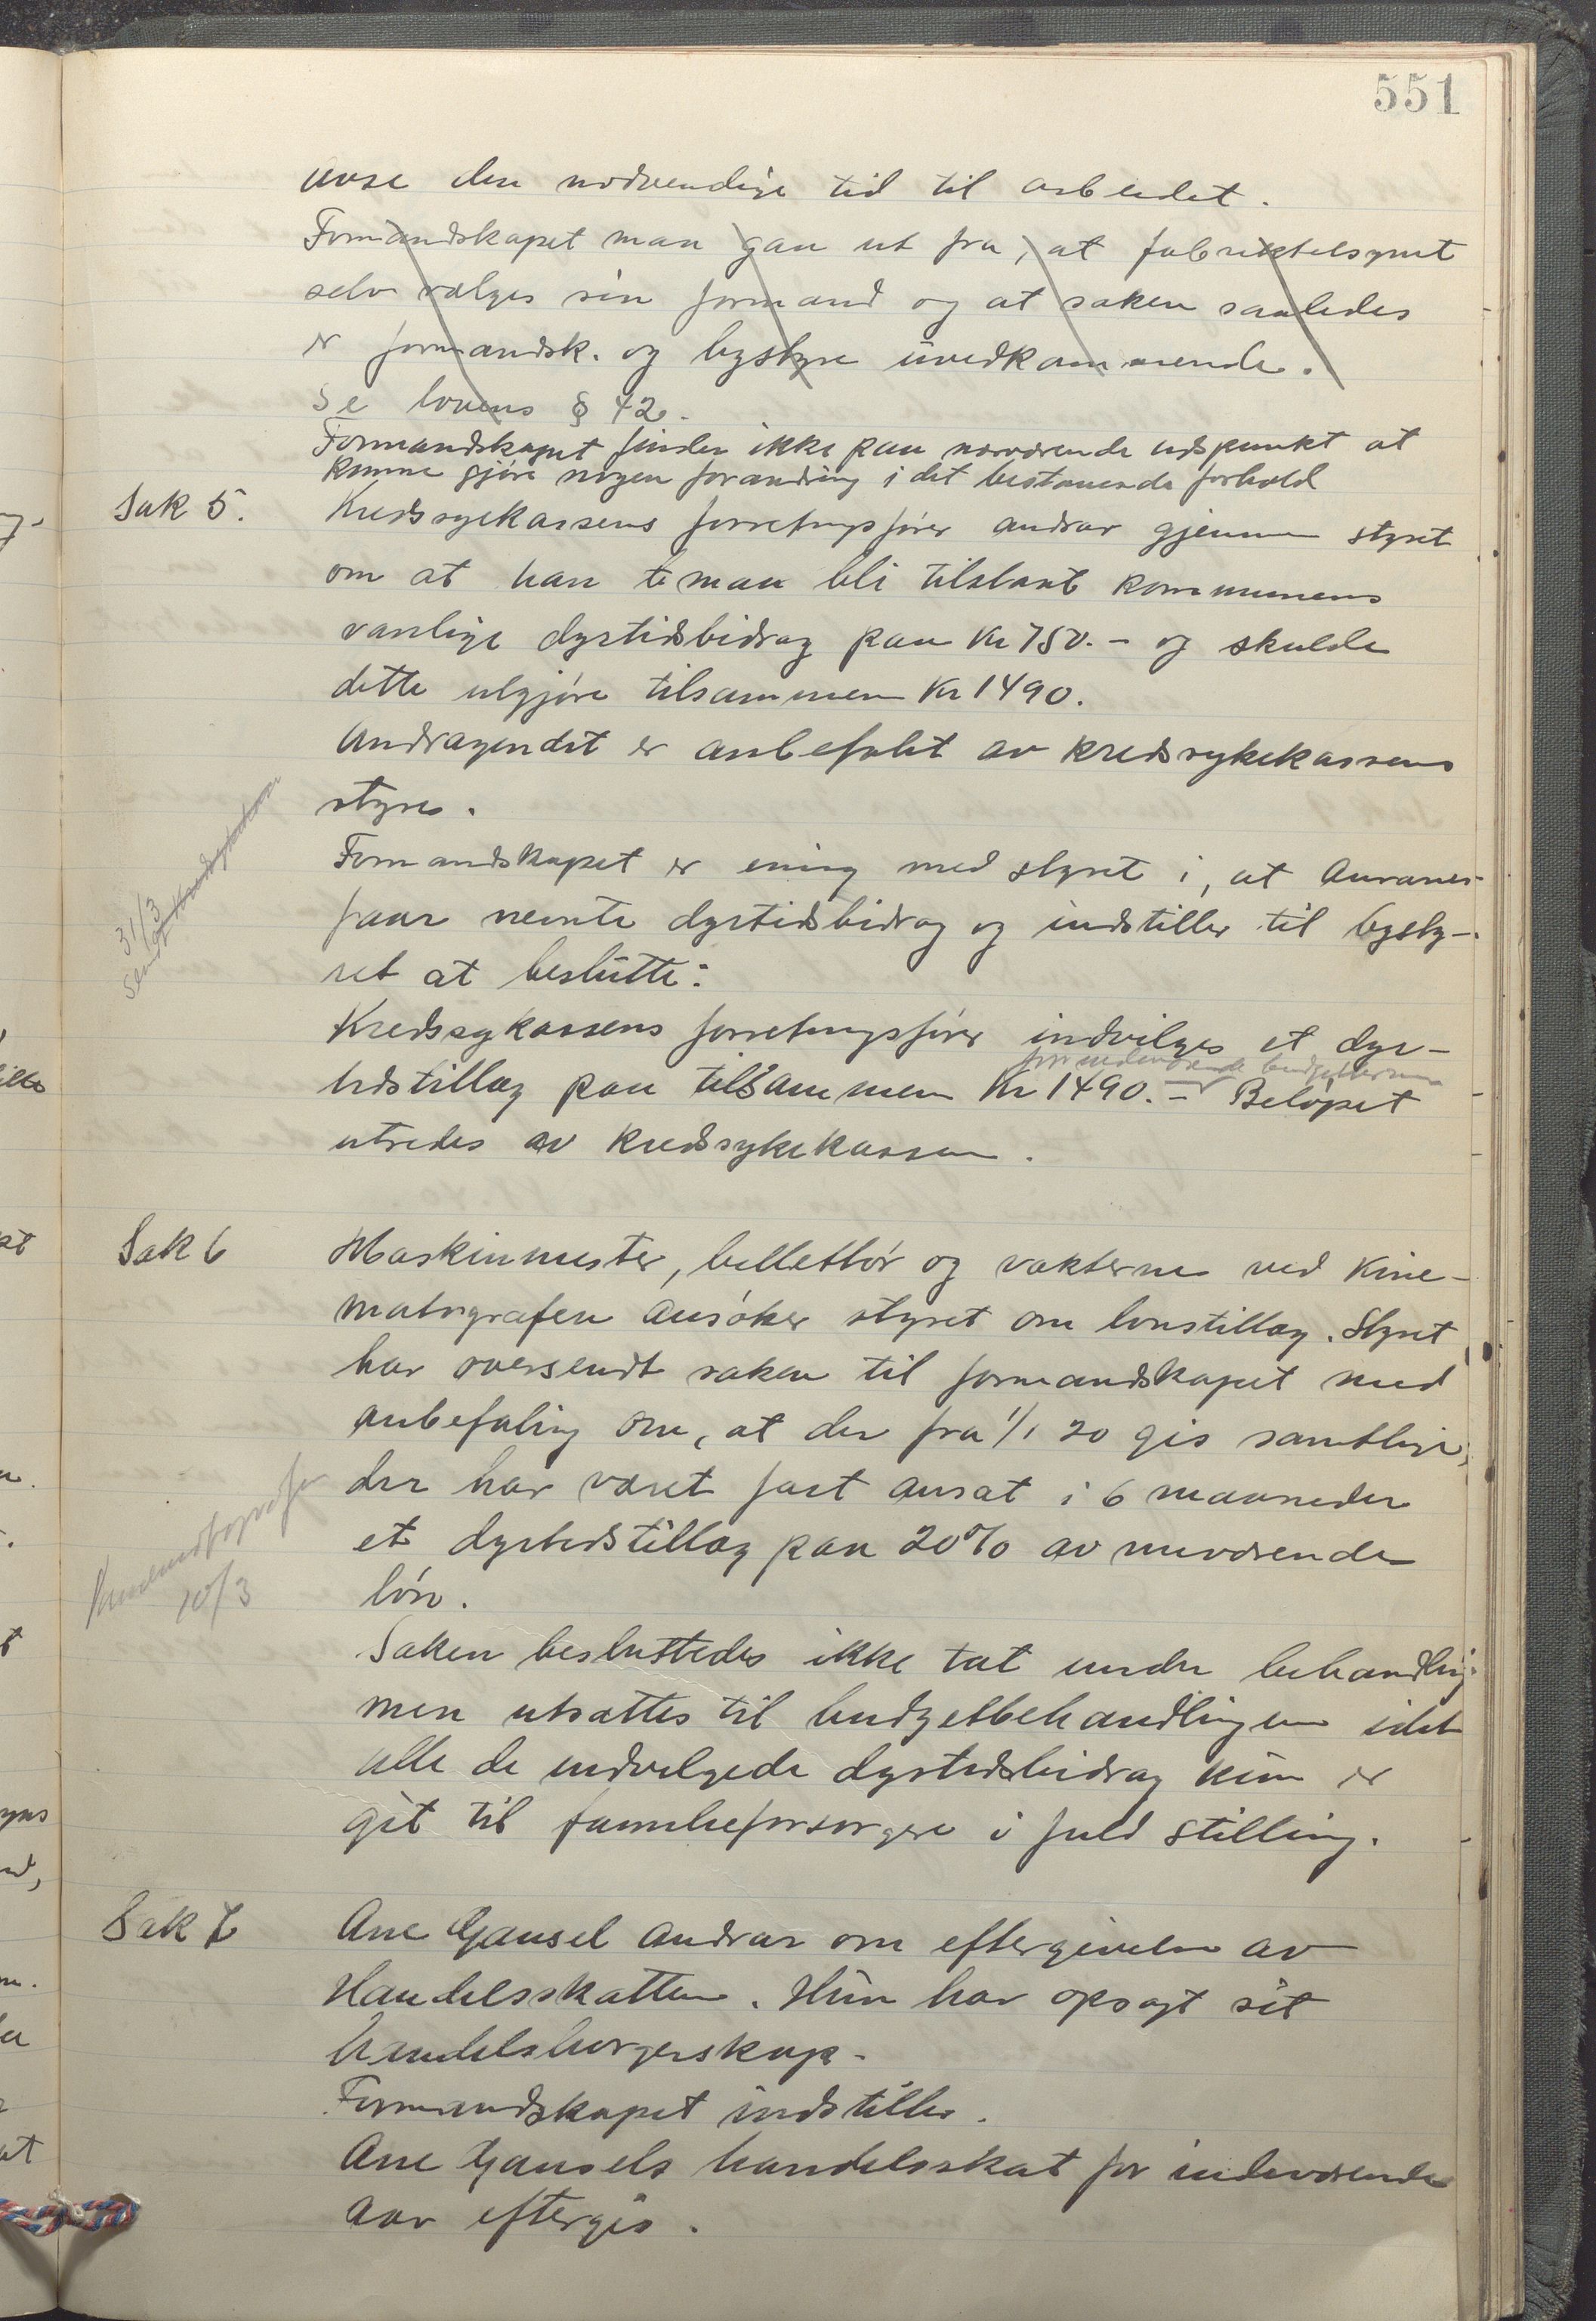 551
avse den nødvendige tid til arbeidet.
Formandskapet maa gaa ut fra, at fabriktilsynet
selv vælges sin formand og at saken saaledes
er formandsk. og bystyre uvedkommende.
Se lovens § 42.
Formandskapet finder ikke paa nærværende tidspunkt at
kunne gjøre nogen forandring i det bestaaende forhold
Sak 5. Kredssykekassens forretningsfører andrar gjennem styret
om at han maa bli tilstaat kommunens
vanlige dyrtidsbidrag paa Kr 750.- og skulde
dette utgjøre tilsammen Kr 1490.
Andragendet er anbefalet av kredssykekassens
styre.
Formandskapet er enig med styret i, at
faar nevnte dyrtidsbidrag og indstiller til bysty-
ret at beslutte:
31/3
Kredssykassens forretningsfører indvilges et dyr-
for indeværende budgettermin
tidstillæg paa tilsammen Kr 1490.- Beløpet
utredes av kredssykekassen.
Sak 6 Maskinmester, billettør og vakterne ved Kine-
matografen ansøker styret om lønstillæg. Styret
har oversendt saken til formandskapet med
anbefaling om, at der fra 1/1 20 gis samtlige,
der har været fast ansat i 6 maaneder
et dyrtidstillæg paa 20% av nuværende
løn.
Kinematografen
10/3
Saken besluttedes ikke tat under behandling
men utsattes til budgetbehandlingen idet
alle de indvilgede dyrtidsbidrag kun er
git til familieforsørgere i fuld stilling.
Sak 7 Ane Gausel andrar om eftergivelse av
Handelsskatten. Hun har opsagt sit
handelsborgerskap.
Formandskapet indstiller.
Ane Gausels handelsskat for indeværende
aar eftergis.